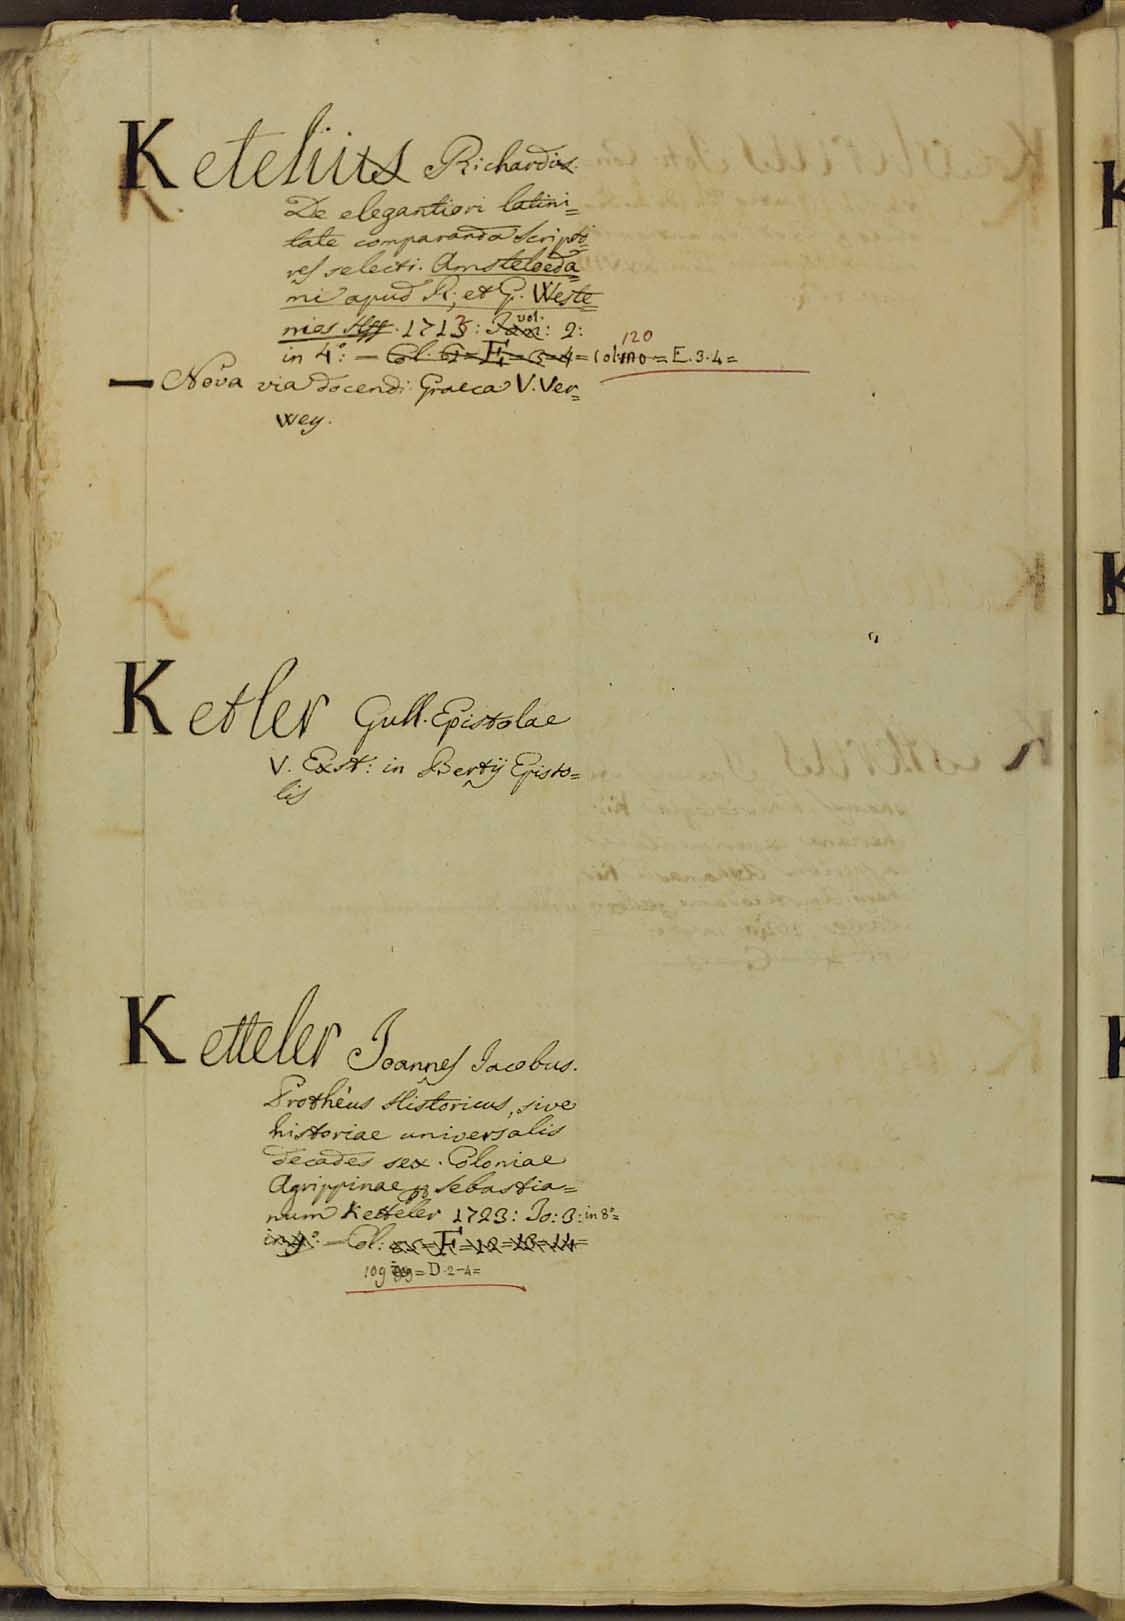 Ketelius Richardus.
De elegantiori latini=
tate comparanda scripto=
res selecti. Amsteloeda=
mi apud R. et G. Weste=
nios 1713: vol. 2:
in 4°: — Col. = E = 3 = 4 = Col: 120 = E. 3. 4 =
— Nova via docendi Graeca V. Ver=
wey.
Ketler Gull. Epistolae
V. Exst: in Bertij Episto=
lis
Ketteler Joannes Jacobus.
Prothéus Historicus, sive
historiae universalis
decades sex. Coloniae
Agrippinae Sebastia=
num Ketteler 1723: To: 3: in 8°=
in 4°: — Col: = F = 12 = 13 = 14 =
109 = D. 2 - 4 =